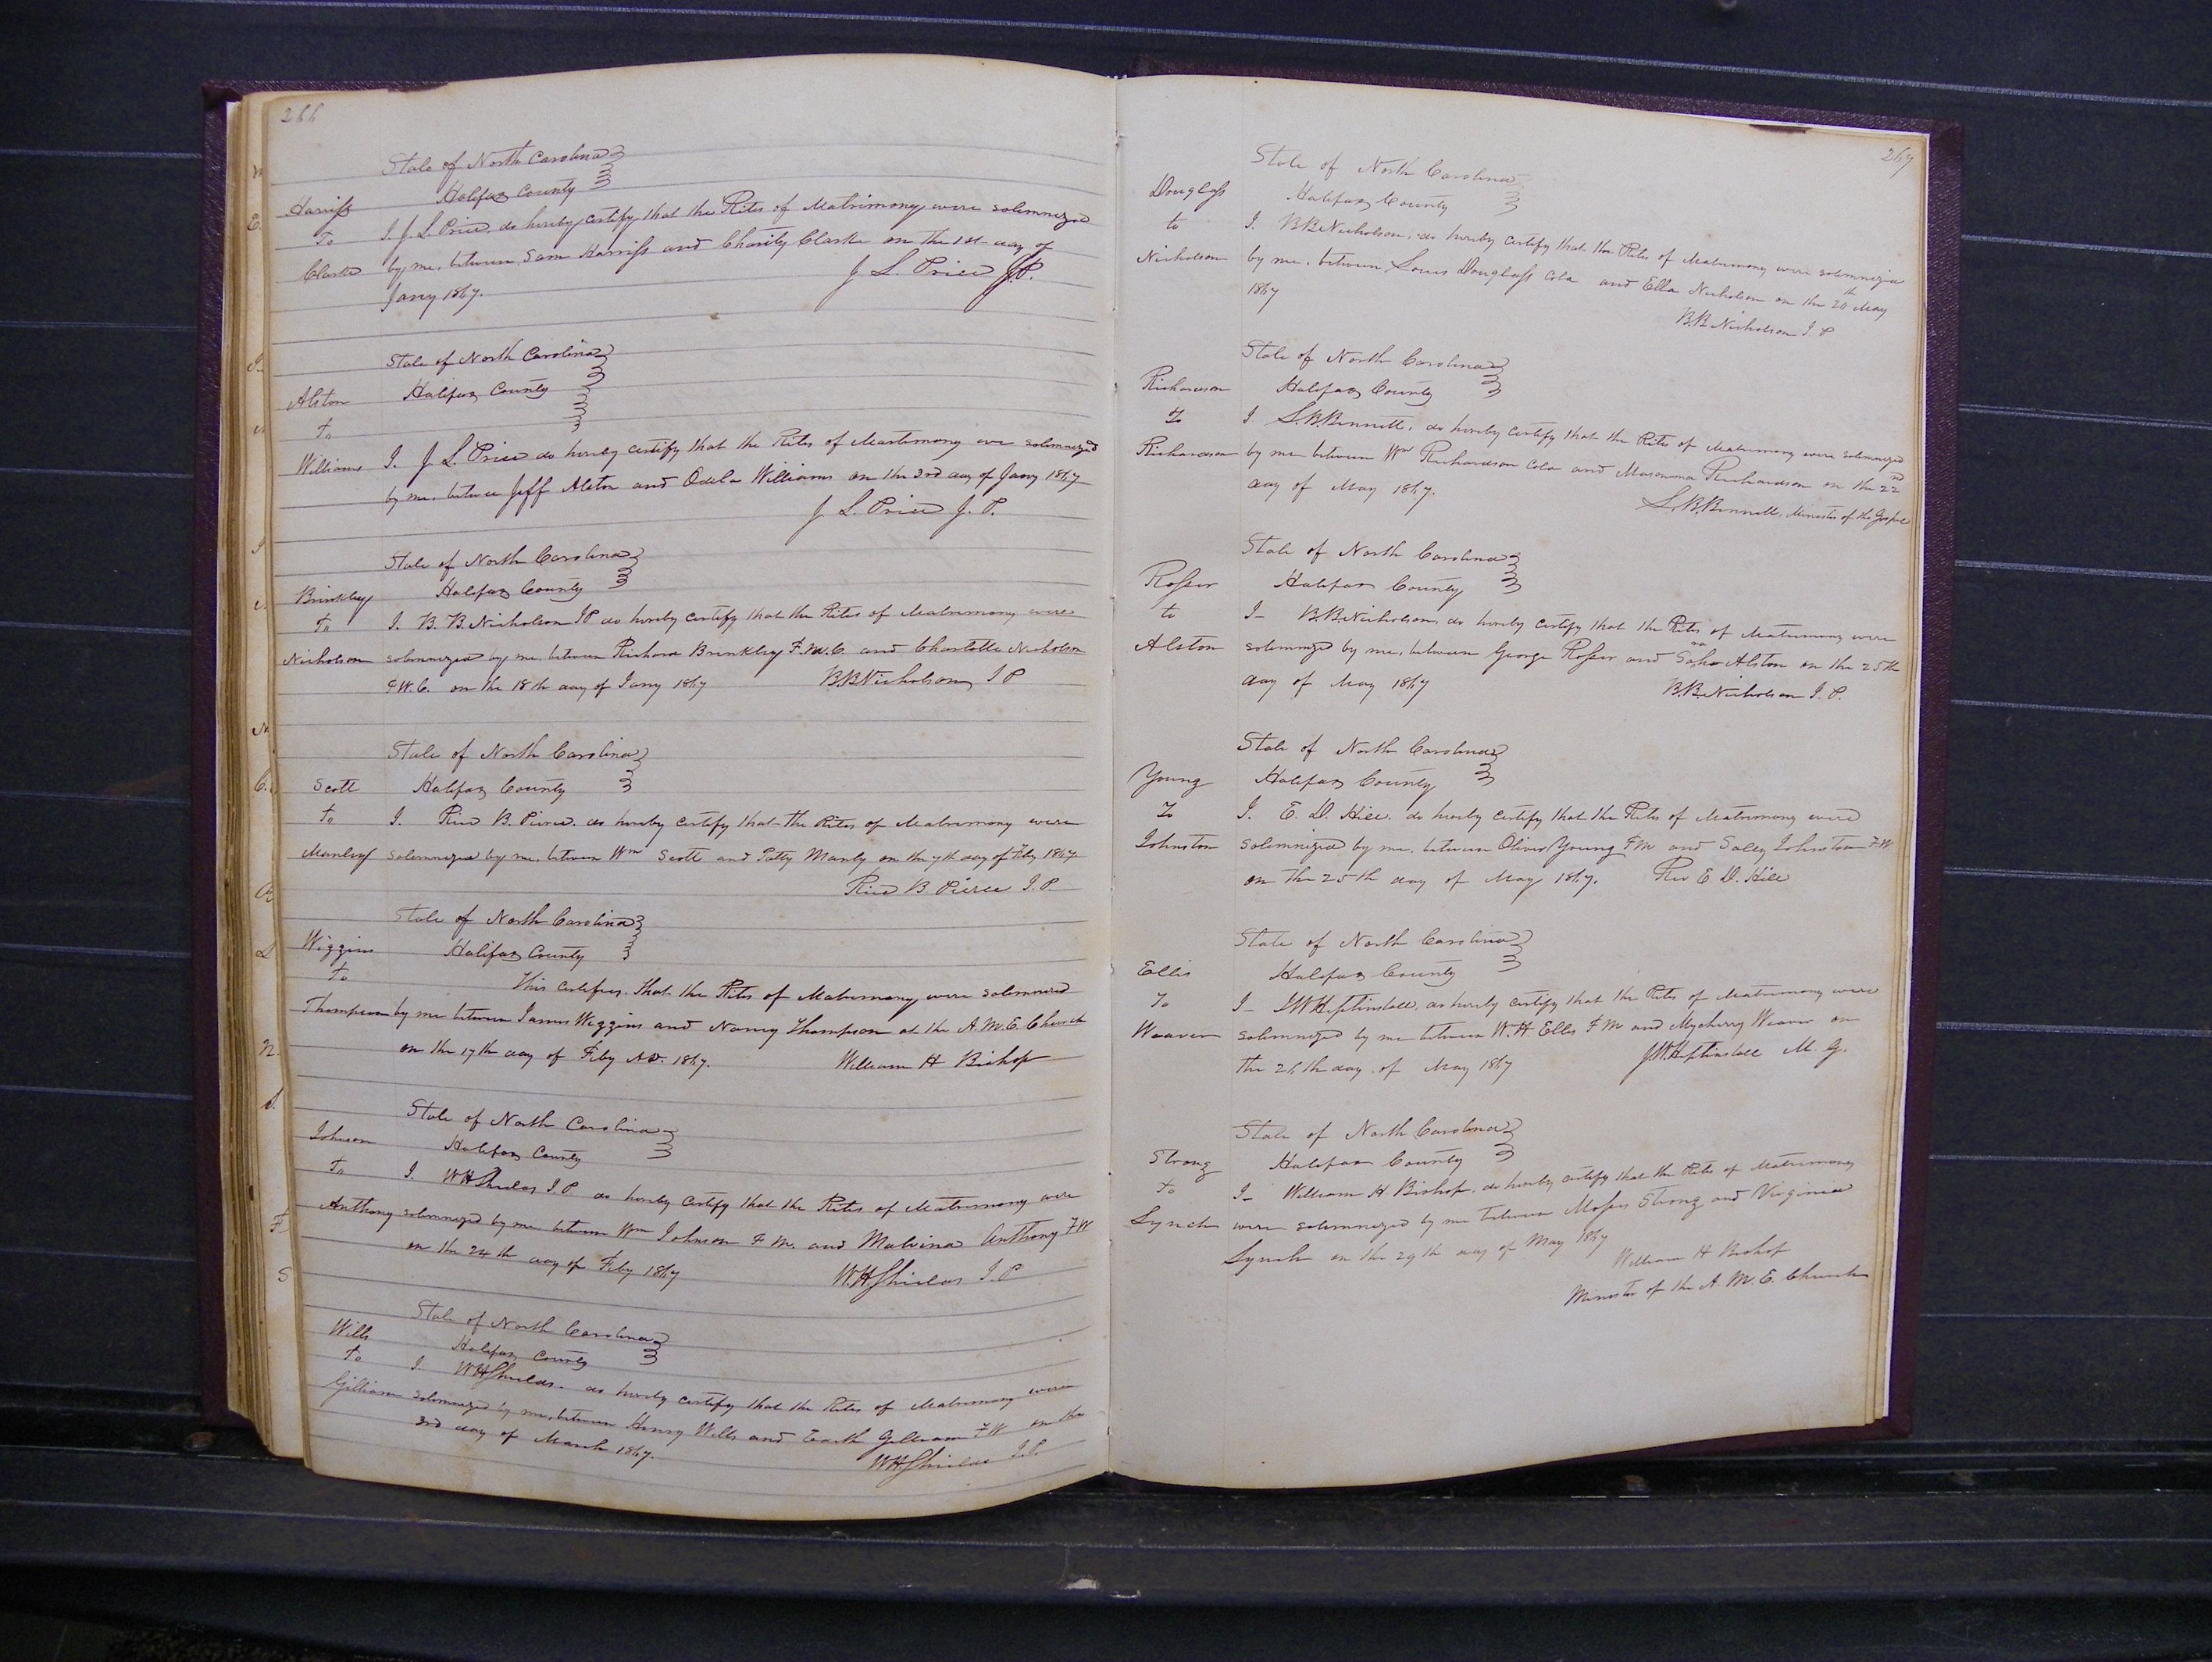 266
State of North Carolina
Halifax County
Harriss
To
Clarke
I. J. L. Price, do hereby certify that the Rites of Matrimony were solemnized
by me, between Sam Harriss and Charity Clarke on the 1st day of
Jany 1867.
J L. Price J.P.
State of North Carolina
Halifax County
Alston
To
Williams
I. J L. Price do hereby certify that the Rites of Martimony ere solemnized
by me, betwee Jeff Alston and Odela Williams on the 3rd day of Jany 1867
J L. Price J. P.
State of North Carolina
Halifax County
Brinkley
To
Nicholson
I. B. B. Nicholson J P do hereby certify that the Rites of Matrimony were
solemnized by me, between Richard Brinkley F. M. C. and Charlotte Nicholson
F. W. C. on the 18th day of Jany 1867
B.B Nicholson, J P
State of North Carolina
Halifax County
Scott
To
Manly
I. Rice B. Pierce, do hereby certify that the Rites of Matrimony were
solemnized by me, between Wm Scott and Patty Manly on the 7th day of Feby 1867
Rice B Pierce J. P.
State of North Carolina
Halifax County
Wiggins
To
Thompson
This certifies that the Rites of Matrimony were solemnized
by me between James Wiggins and Nancy Thompson at the A. M. E. Church
on the 17th day of Feby A.D. 1867.
William H Bishop
State of North Carolina
Halifax County
Johnson
To
Anthony
I. W H Shields J. P do hereby certify that the Rites of Matrimony were
solemnized by me between Wm Johnson F M. and Malvina Anthony F W
on the 24th day of Feby 1867
W. H. Shields J. P
State of North Carolina
Halifax County
Wills
To
Gilliam
I. W H Shields. do hereby certify that the Rites of Matrimony were
solemnized by me, between Henry Wills and Gilliam F W on the
3rd day of March 1867.
W H Shields J. P.
267
State of North Carolina
Halifax County
Douglass
to
Nicholson
I. B B Nicholson, do hereby certify that the Rites of Matrimony were solemnized
by me, between Louis Douglass Cold and Ella Nicholson on the 20th May
1867
B. B Nicholson J. P
State of North Carolina
Halifax County
Richardson
To
Richardson
I S. B. Bennett, do hereby certify that the Rites of Matrimony were solemnized
by me between Wm Richardson Cold and Richardson on the 22nd
day of May 1867.
S. B. Bennett, Minister of the Gospel
State of North Carolina
Halifax County
Rosser
to
Alston
I- B. B. Nicholson, do hereby certify that the Rites of Matrimony were
solemnized by me, between George Rosser and Alston on the 25th
day of May 1867
B. B. Nicholson J. P.
State of North Carolina
Halifax County
Young
To
Johnston
I. E. D. Hill. do hereby certify that the Rites of Matrimony were
solemnized by me, between Oliver Young F M and Salley Johnston F W
on the 25th day of May 1867. Rev E D. Hill
State of North Carolina
Halifax County
Ellis
To
Weaver
I- J W Heptinstall, do hereby certify that the Rites of Matrimony were
solemnized by me between W. H. Ellis F M and Mycherry Weaver on
the 26th day of May 1867
J. W. Heptinstall M. G.
State of North Carolina
Halifax County
Strong
To
Lynch
I- William H. Bishop, do hereby certify that the Rites of Matrimony
were solemnized by me between Moses Strong and Virginia
Lynch on the 29th day of May 1867
William H Bishop
Minister of the A. M. E. Church